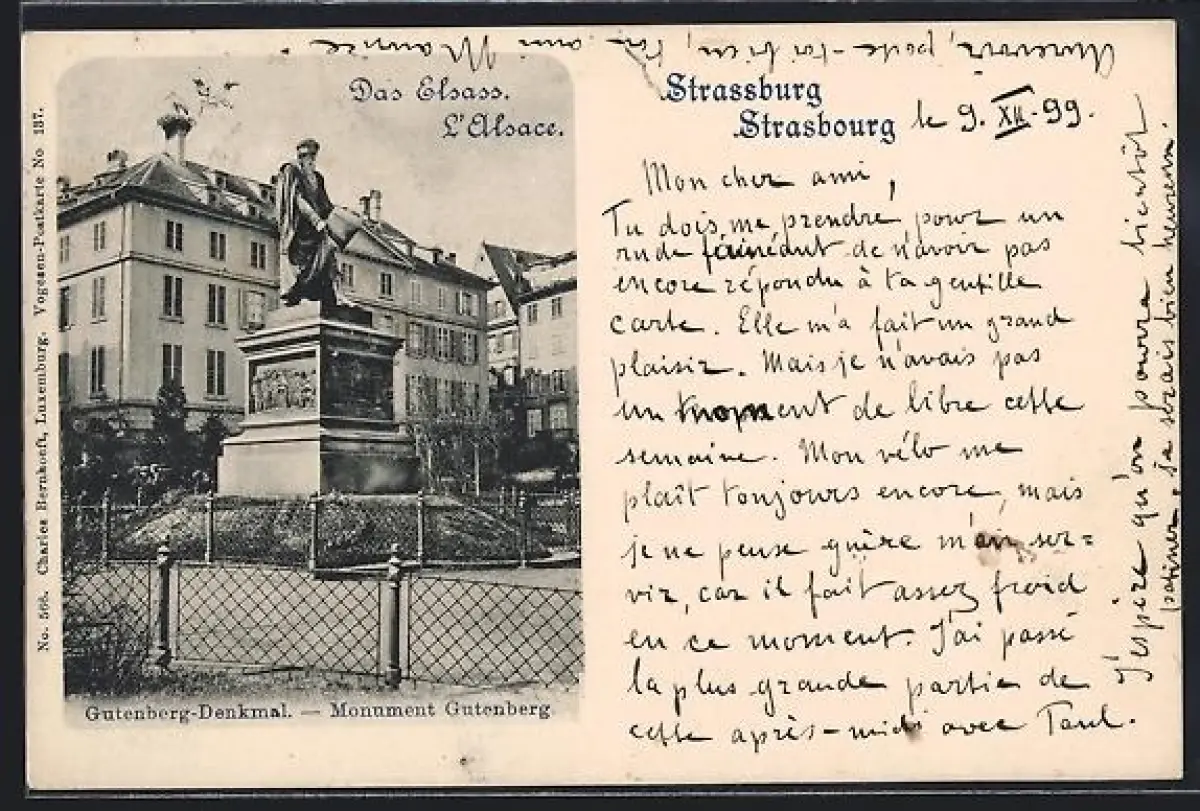 Das Elsass.
L'Alsace.
Strassburg
Strasbourg le 9. XII.-99.
Mon cher ami,
Tu dois me prendre pour un
rude fainéant de n'avoir pas
encore répondu à ta gentille
carte. Elle m'a fait un grand
plaisir. Mais je n'avais pas
un moment de libre cette
semaine. Mon vélo me
plaît toujours encore, mais
je ne peux guère m'en ser=
vir, car il fait assez froid
en ce moment. J'ai passé
la plus grande partie de
cette après-midi avec Paul.
J'espère qu'on pourra bientôt
patiner. Je serais bien heureux.
Aurevoir, porte-toi bien, Ton ami Maurice.
Gutenberg-Denkmal. — Monument Gutenberg
No. 566. Charles Bernhoeft, Luxemburg. Vogesen-Postkarte No 137.